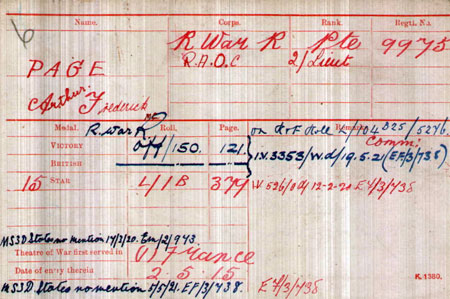 6
Name. Corps. Rank. Regtl. No.
R War R Pte 9975
PAGE R.A.O.C 2/Lieut
Arthur Frederick
Medal. R. War R Roll. Page. Remarks.
on Roll 2/104 B25/5276
VICTORY Off/150. 121. Comm:
BRITISH IV.3353/W.d/19.5.21 (EF/3/738)
15 STAR 4/1 B 377 W 526/0d 12-2-20 EF/3/738
MS3D States no mention 17/2/20. Em/2/943
Theatre of War first served in (1) France
Date of entry therein 2.5.15
MS3D States no mention 5/5/21. EF/3/738. EF/3/738
K. 1380.